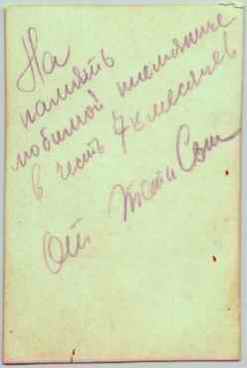 На
память
любимой племянице
в честь 7х месяцев
От Тети Сони